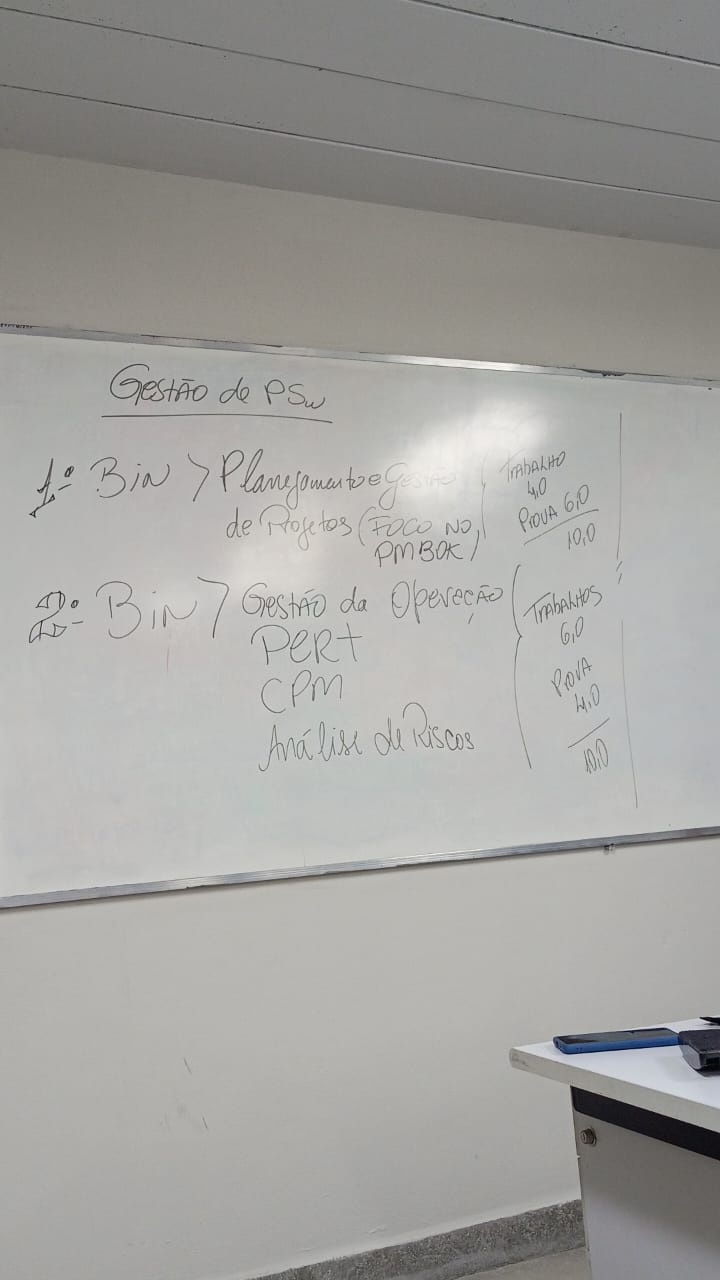 Gestão de PSw
1º Bin > Planejamento e Gestão
de Projetos (FOCO NO
PMBOK)
TRABALHO
4,0
PROVA 6,0
10,0
2º Bin > Gestão da Opereção
PERT
CPM
Análise de Riscos
TRABALHOS
6,0
PROVA
4,0
10,0